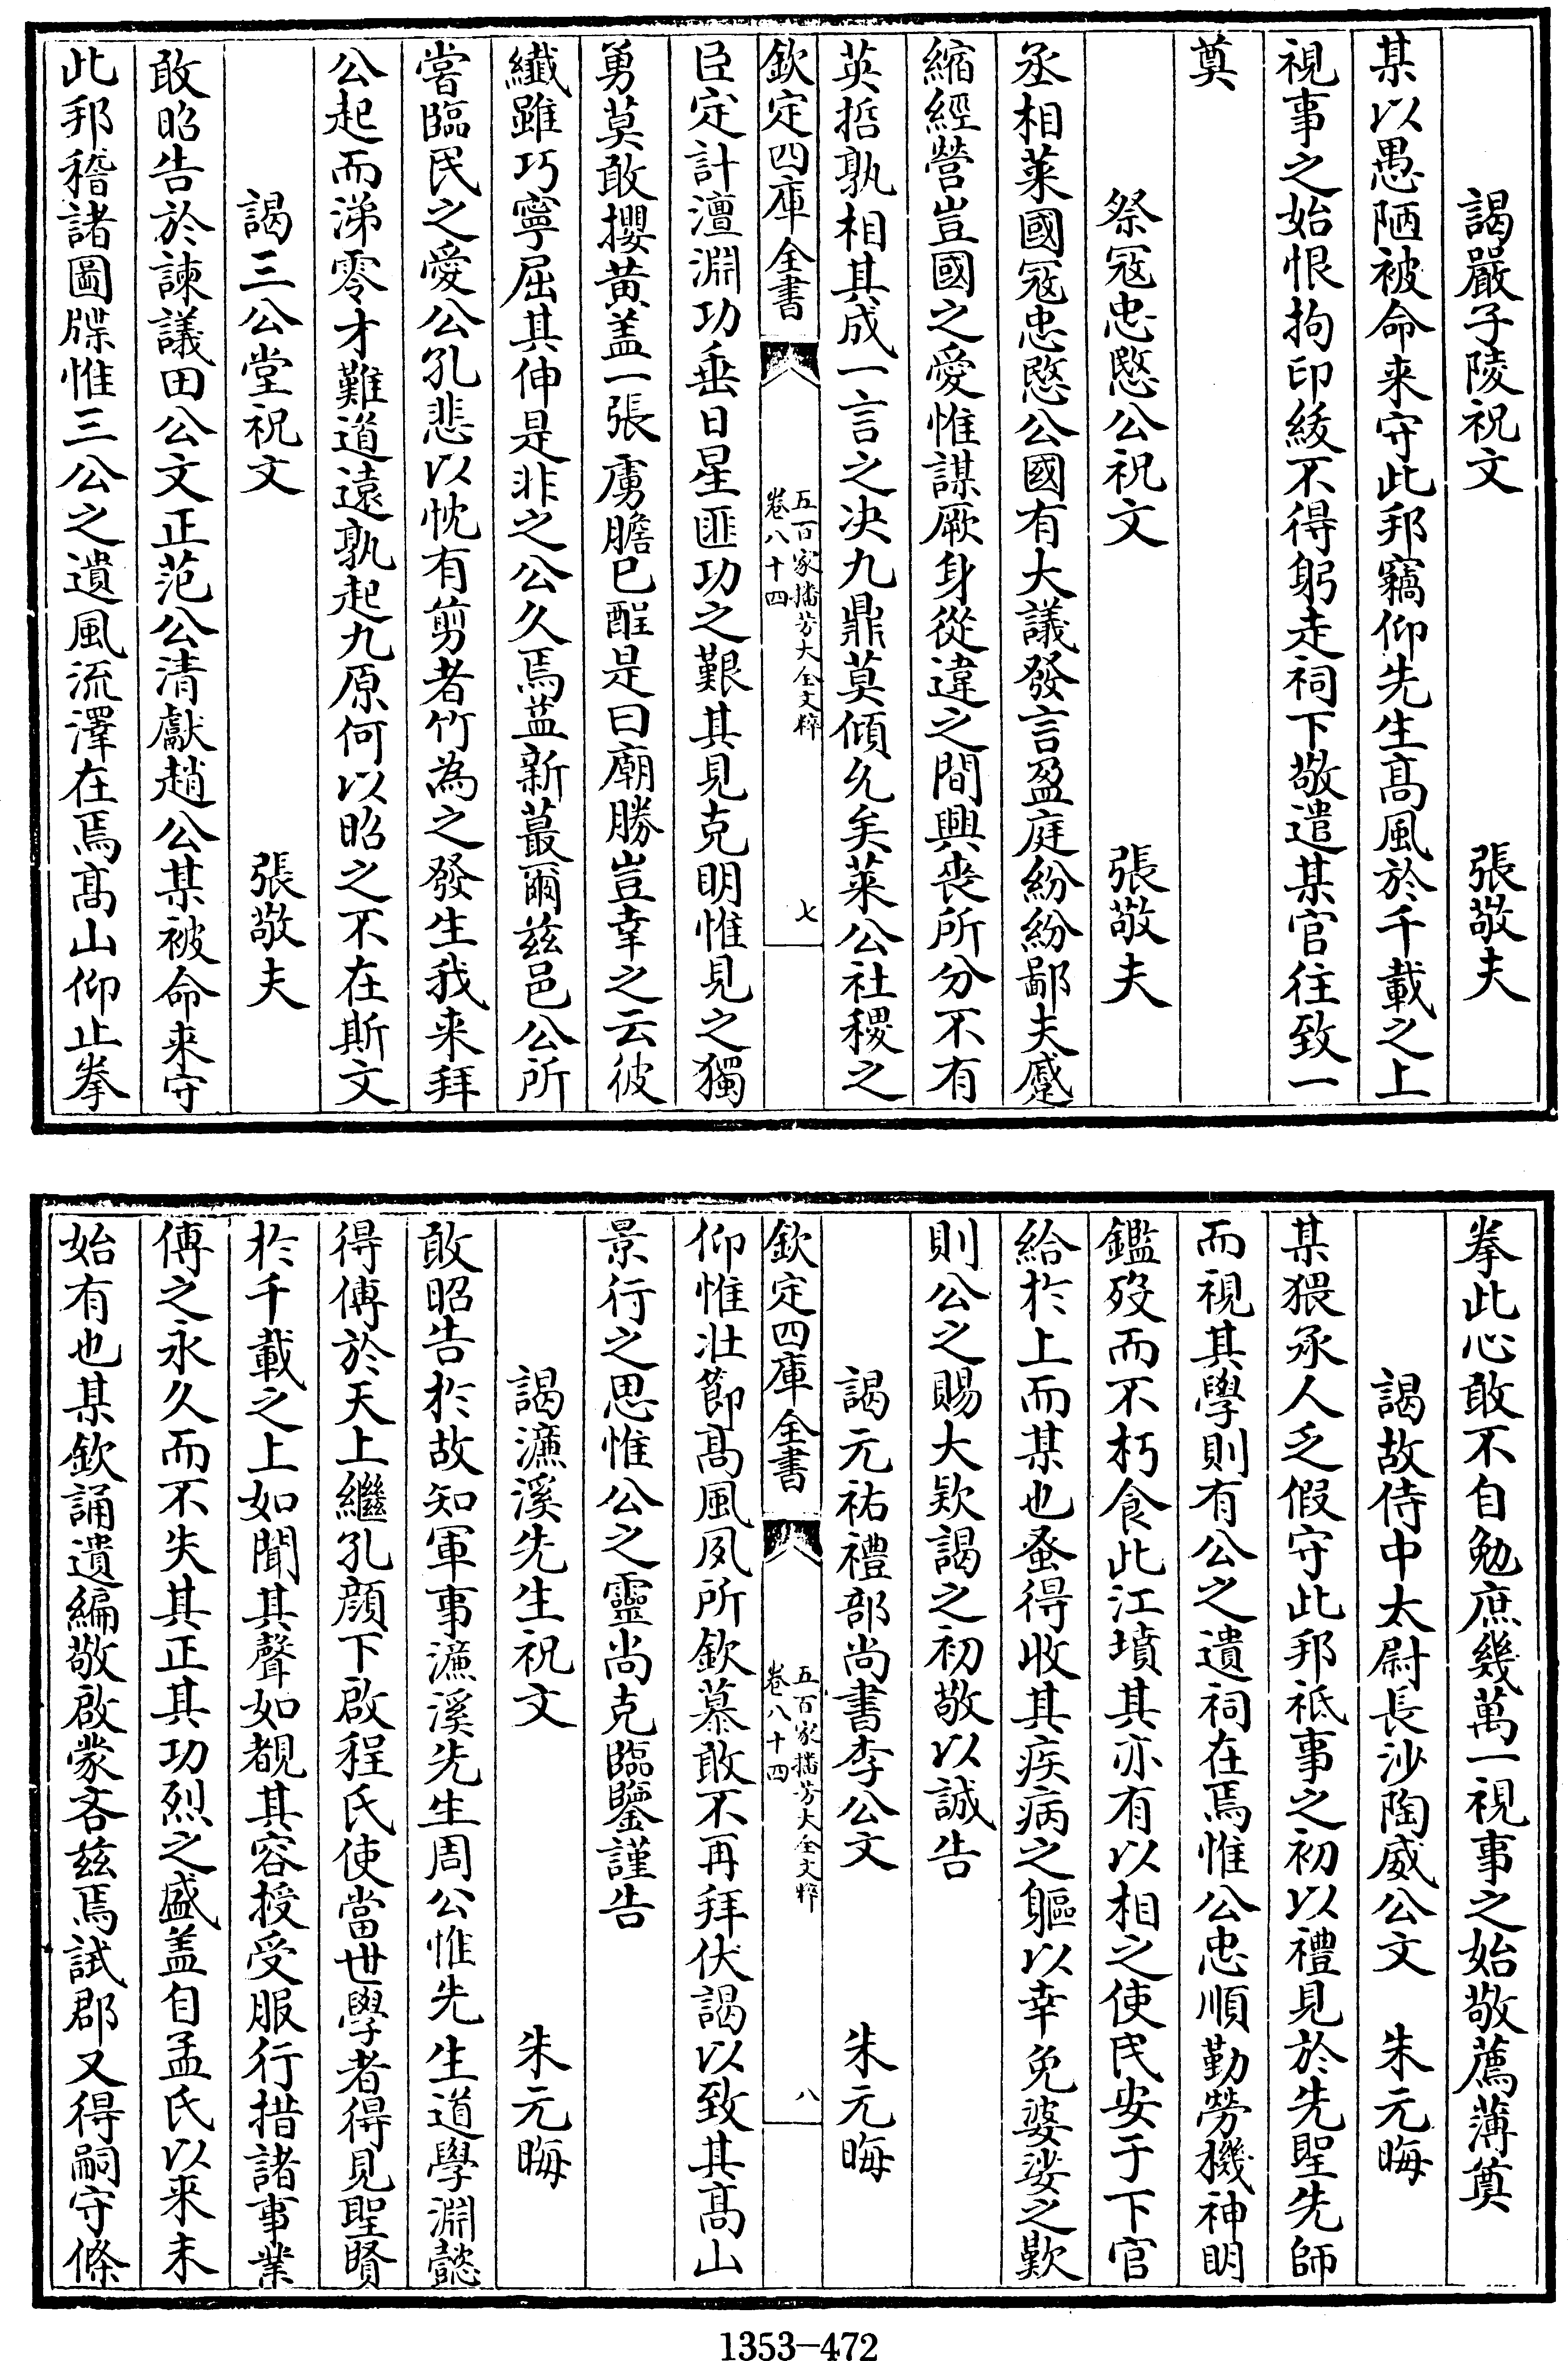 謁嚴子陵祝文　張敬夫
某以愚陋被命来守此邦竊仰先生髙風於千載之上
視事之始恨拘印綬不得躬走祠下敬遣某官往致一
奠
祭冦忠愍公祝文　張敬夫
丞相萊國冦忠愍公國有大議發言盈庭紛紛鄙夫蹙
縮經營豈國之愛惟謀厥身從違之間興喪所分不有
英哲孰相其成一言之决九鼎莫傾允矣萊公社稷之
欽定四庫全書
五百家播芳大全文粹
卷八十四
七
臣定計澶淵功垂日星匪功之艱其見克明惟見之獨
勇莫敢攖黄盖一張虜膽已酲是曰廟勝豈幸之云彼
纖雖巧寧屈其伸是非之公久焉葢新蕞爾兹邑公所
嘗臨民之愛公孔悲以忱有剪者竹為之發生我来拜
公起而涕零才難道遠孰起九原何以昭之不在斯文
謁三公堂祝文　張敬夫
敢昭告於諫議田公文正范公清獻趙公某被命来守
此邦稽諸圖牒惟三公之遺風流澤在焉髙山仰止拳
拳此心敢不自勉庶幾萬一視事之始敬薦薄奠
謁故侍中太尉長沙陶威公文　朱元晦
某猥承人乏假守此邦祗事之初以禮見於先聖先師
而視其學則有公之遺祠在焉惟公忠順勤勞機神明
鑑歿而不朽食此江墳其亦有以相之使民安于下官
給於上而某也蚤得收其疾病之軀以幸免婆娑之歎
則公之賜大欵謁之初敬以誠告
謁元祐禮部尚書李公文　朱元晦
欽定四庫全書
五百家播芳大全文粹
卷八十四
八
仰惟壯節髙風夙所欽慕敢不再拜伏謁以致其髙山
景行之思惟公之靈尚克臨鑒謹告
謁濂溪先生祝文　朱元晦
敢昭告於故知軍事濂溪先生周公惟先生道學淵懿
得傳於天上繼孔顔下啟程氏使當世學者得見聖賢
於千載之上如聞其聲如覩其容授受服行措諸事業
傳之永久而不失其正其功烈之盛盖自孟氏以来未
始有也某欽誦遺編敬啟蒙吝兹焉試郡又得嗣守條
1353-472